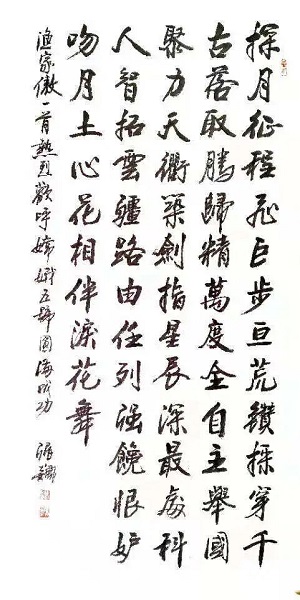 探月征程飛巨步亘荒鑽探穿千
古落取騰歸精萬度全自主舉國
聚力天衢築劍指星辰深最處科
人智拓雲疆路由任列强饞恨妒
吻月土心花相伴淚花舞
渔家傲一首熱烈歡呼嫦娥五號圓滿成功